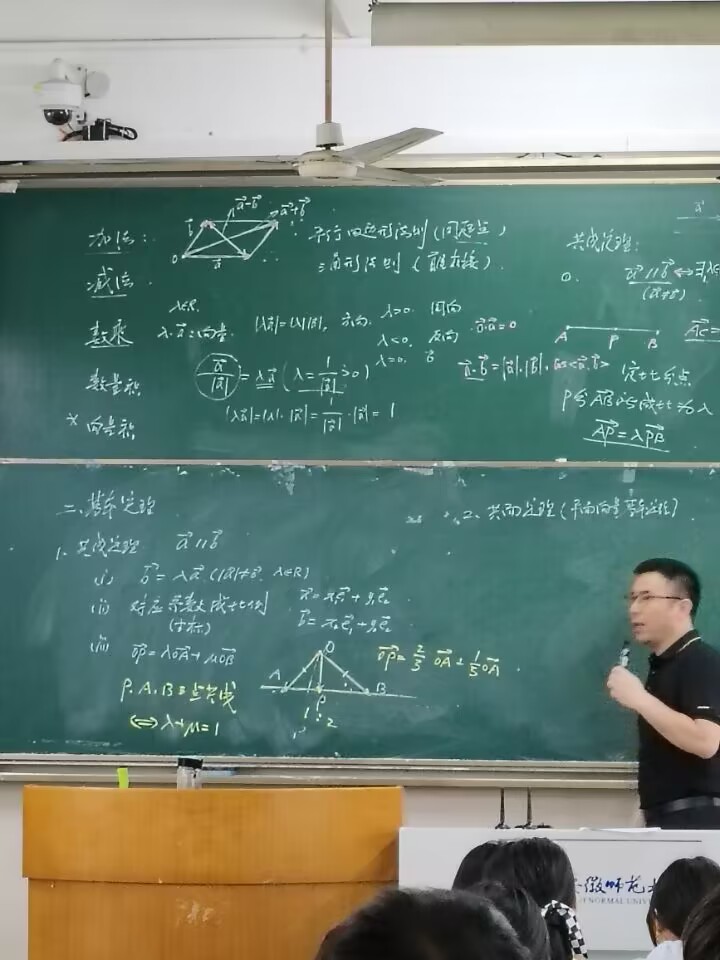 加法：
减法
数乘
数量积
× 向量积
O
a⃗
b⃗
a⃗-b⃗
a⃗+b⃗
平行四边形法则（同起点）
三角形法则（首尾相接）
λ∈R.
λ·a⃗：向量
|λa⃗|=|λ||a⃗|,
方向.
λ>0. 同向
λ<0. 反向
λ=0. 0⃗
a⃗/|a⃗| = λa⃗ (λ=1/|a⃗|>0)
|λa⃗|=|λ|·|a⃗|=1/|a⃗|·|a⃗|=1
a⃗·b⃗=|a⃗|·|b⃗|,cos<a⃗,b⃗>
共线定理：
a⃗∥b⃗⟺∃λ∈
A P B
AC⃗=
定比分点
P分AB⃗的成比为λ
AP⃗=λPB⃗
二、基本定理
1. 共线定理 a⃗∥b⃗
(i) b⃗=λa⃗ (|a⃗|≠0⃗, λ∈R)
(ii) 对应系数成比例
(坐标)
a⃗=x₁e⃗₁+y₁e⃗₂
b⃗=x₂e⃗₁+y₂e⃗₂
(iii) OP⃗=λOA⃗+μOB⃗
P.A.B三点共线
⟺λ+μ=1
O
A P B
1:2
OP⃗=2/3 OA⃗+1/3 OA⃗
2、共面定理（平面向量基本定理）
安徽师范大
NORMAL UNIV